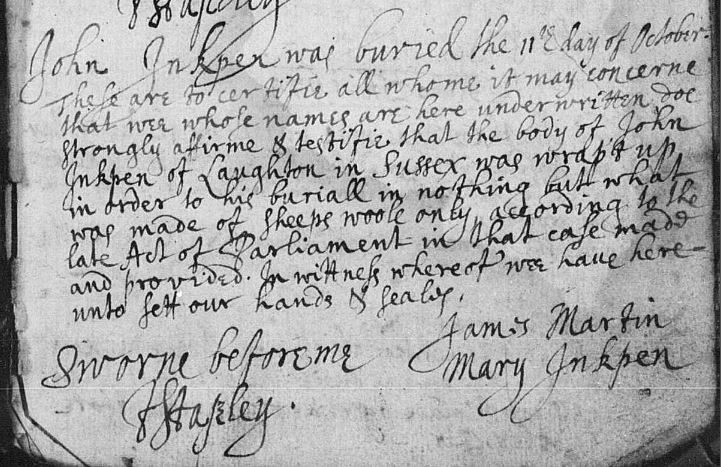 John Inkpen was buried the 11th day of October.
These are to certifie all whome it may concerne
that wee whose names are here underwritten doe
strongly affirme & testifie that the body of John
Inkpen of Laughton in Sussex was wrapt up
in order to his buriall in nothing but what
was made of sheeps wooll only according to the
late Act of Parliament in that case made
and provided. In wittness whereof wee have here-
unto sett our hands & seales.
James Martin
Sworne before me
Mary Inkpen